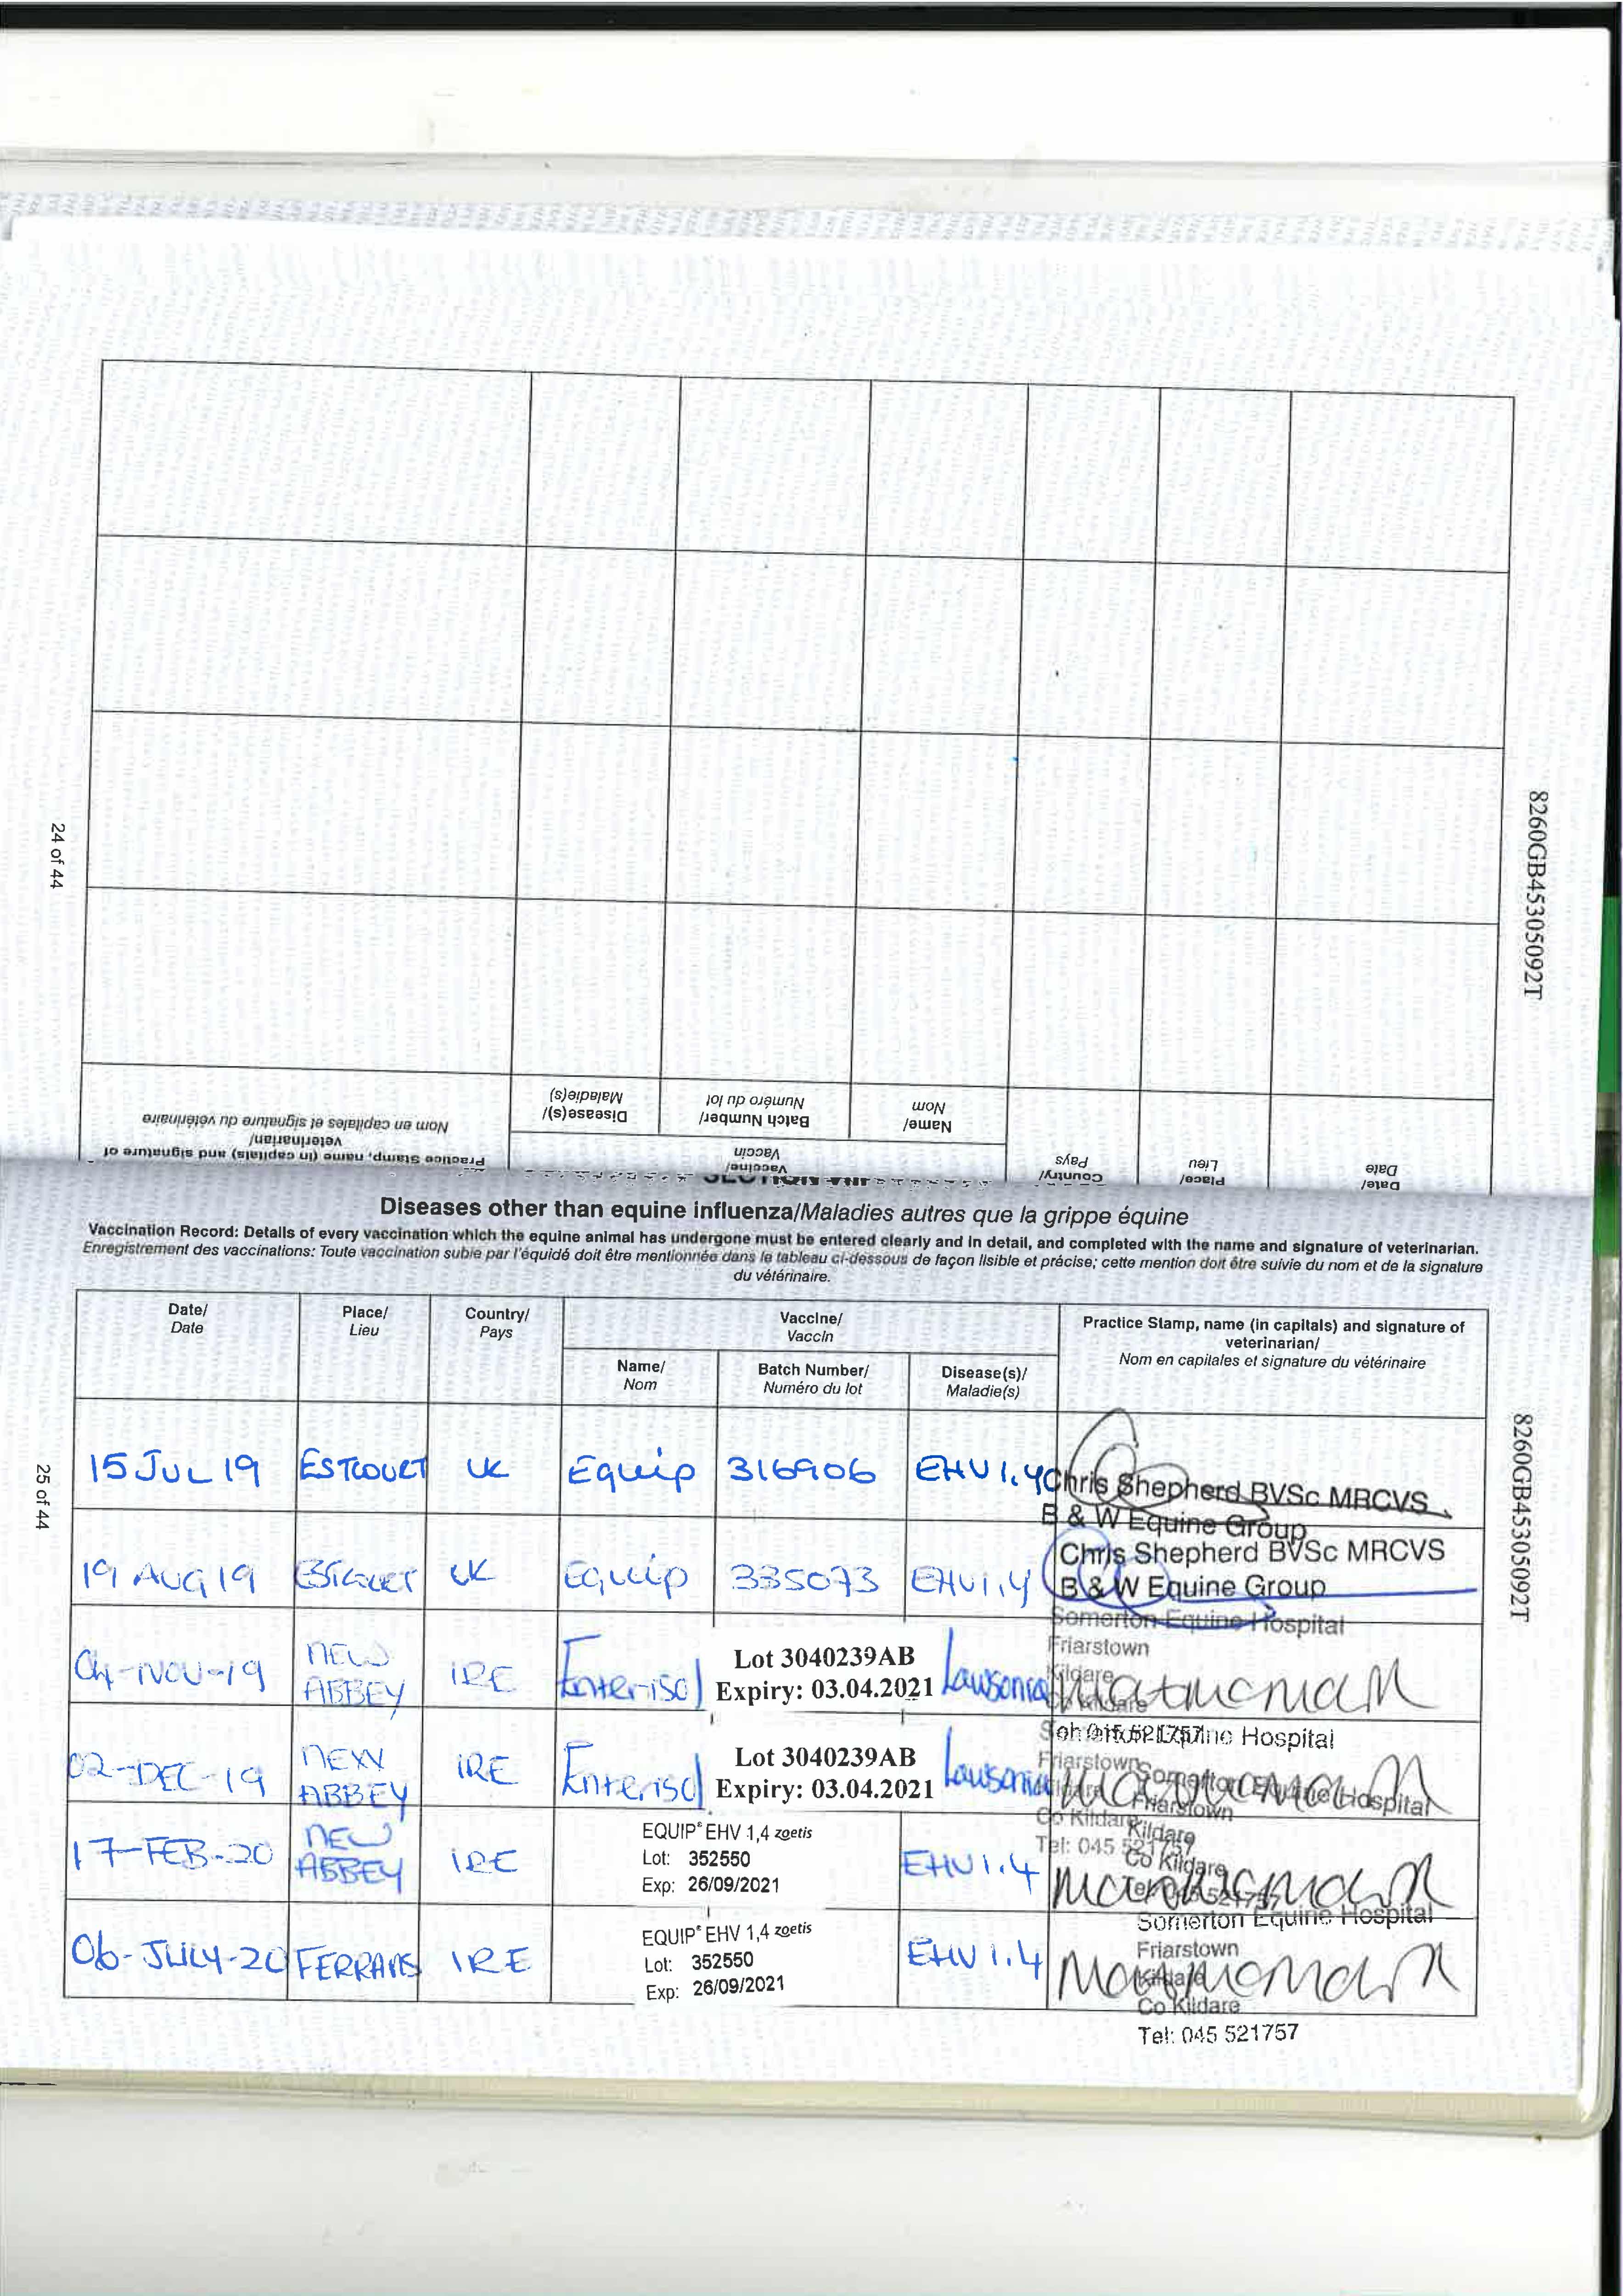 24 of 44
8260GB45305092T
Date/
Date
Place/
Lieu
Country/
Pays
Vaccine/
Vaccin
Name/
Nom
Batch Number/
Numéro du lot
Disease(s)/
Maladie(s)
Practice Stamp, name (in capitals) and signature of
veterinarian/
Nom en capitales et signature du vétérinaire
Diseases other than equine influenza/Maladies autres que la grippe équine
Vaccination Record: Details of every vaccination which the equine animal has undergone must be entered clearly and in detail, and completed with the name and signature of veterinarian.
Enregistrement des vaccinations: Toute vaccination subie par l'équidé doit être mentionnée dans le tableau ci-dessous de façon lisible et précise; cette mention doit être suivie du nom et de la signature
du vétérinaire.
25 of 44
8260GB45305092T
Date/
Date
Place/
Lieu
Country/
Pays
Vaccine/
Vaccin
Name/
Nom
Batch Number/
Numéro du lot
Disease(s)/
Maladie(s)
Practice Stamp, name (in capitals) and signature of
veterinarian/
Nom en capitales et signature du vétérinaire
15 JUL 19 ESTCOURT UK Equip 316906 EHV1.4
Chris Shepherd BVSc MRCVS
B & W Equine Group
19 AUG 19 UK Equip 335073 EHV1,4
Chris Shepherd BVSc MRCVS
B & W Equine Group
04-NOV-19 NEW ABBEY IRE Enterisol
Lot 3040239AB
Expiry: 03.04.2021
Lawsonia
Somerton Equine Hospital
Friarstown
Kildare
Co Kildare
02-DEC-19 NEW ABBEY IRE Enterisol
Lot 3040239AB
Expiry: 03.04.2021
Lawsonia
Hospital
Friarstown
Co Kildare
Tel: 045 521757
17-FEB-20 NEW ABBEY IRE
EQUIP EHV 1,4 zoetis
Lot: 352550
Exp: 26/09/2021
EHV1.4
Somerton Equine Hospital
Friarstown
Kildare
Co Kildare
06-JULY-20 FERRANS IRE
EQUIP EHV 1,4 zoetis
Lot: 352550
Exp: 26/09/2021
EHV1.4
Somerton Equine Hospital
Friarstown
Kildare
Co Kildare
Tel: 045 521757